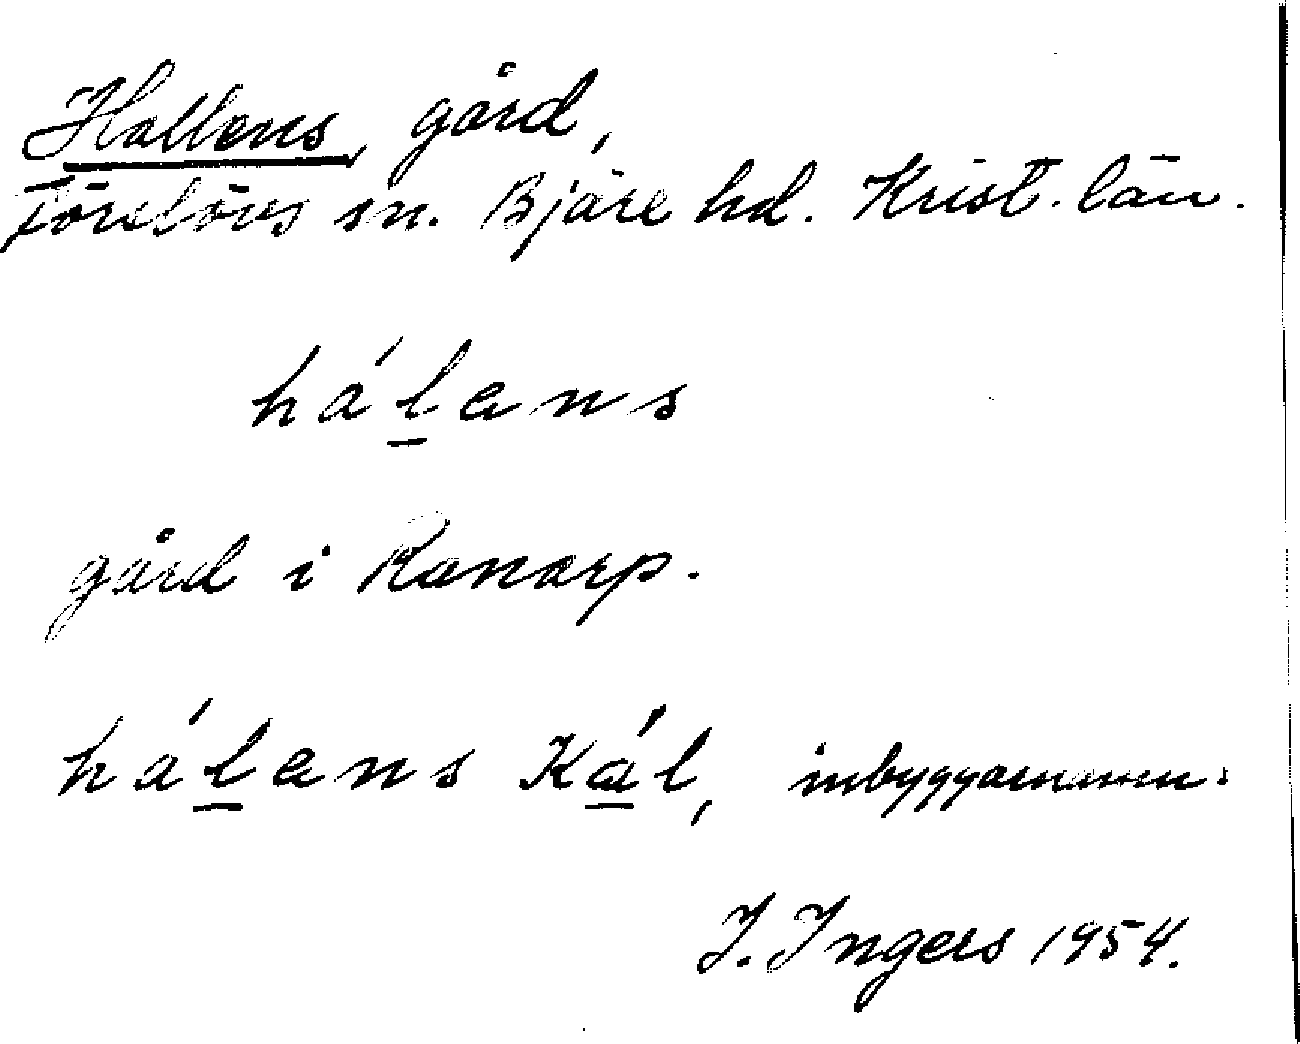 Hallens, gård,
Förslövs sn. Bjäre hd. Krist. län.
há l̲ a n s
gård i Ranarp.
há l̲ a n s Ká̲l, inbyggarnamn.
I. Ingers 1954.